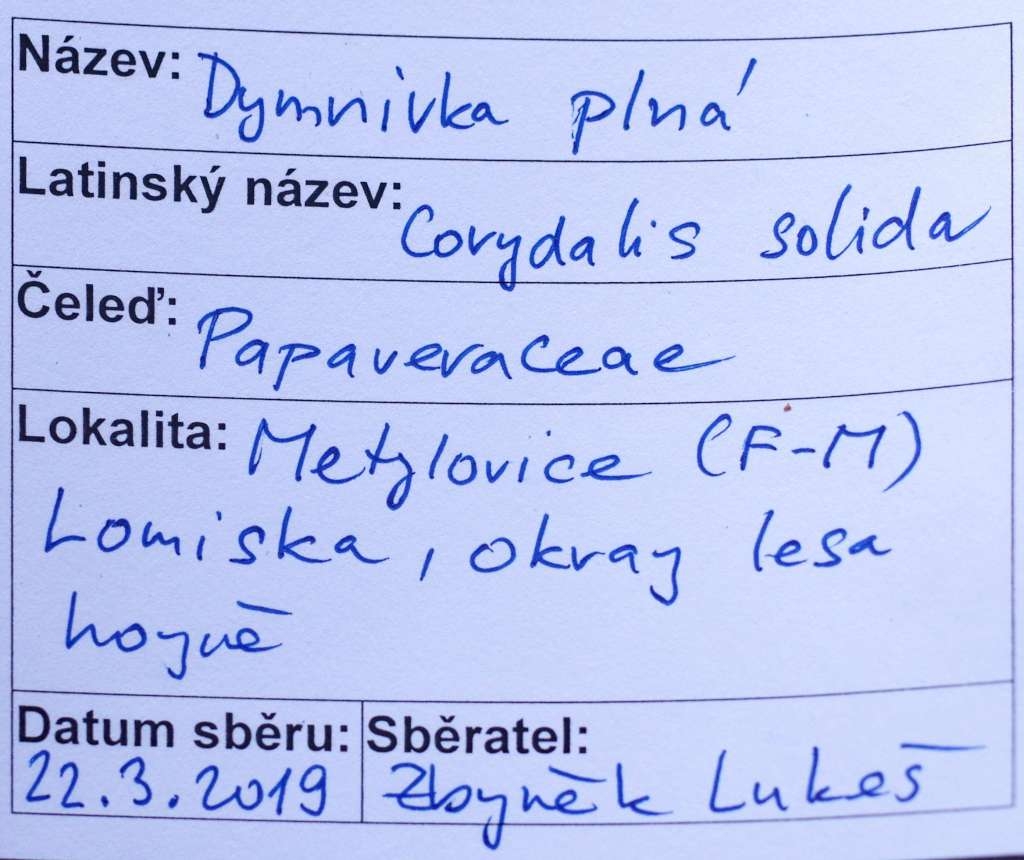 Název: Dymnivka plná
Latinský název: Corydalis solida
Čeleď: Papaveraceae
Lokalita: Metylovice (F-M)
Lomiska, okraj lesa
hojně
Datum sběru: Sběratel:
22.3.2019 Zbyněk Lukeš